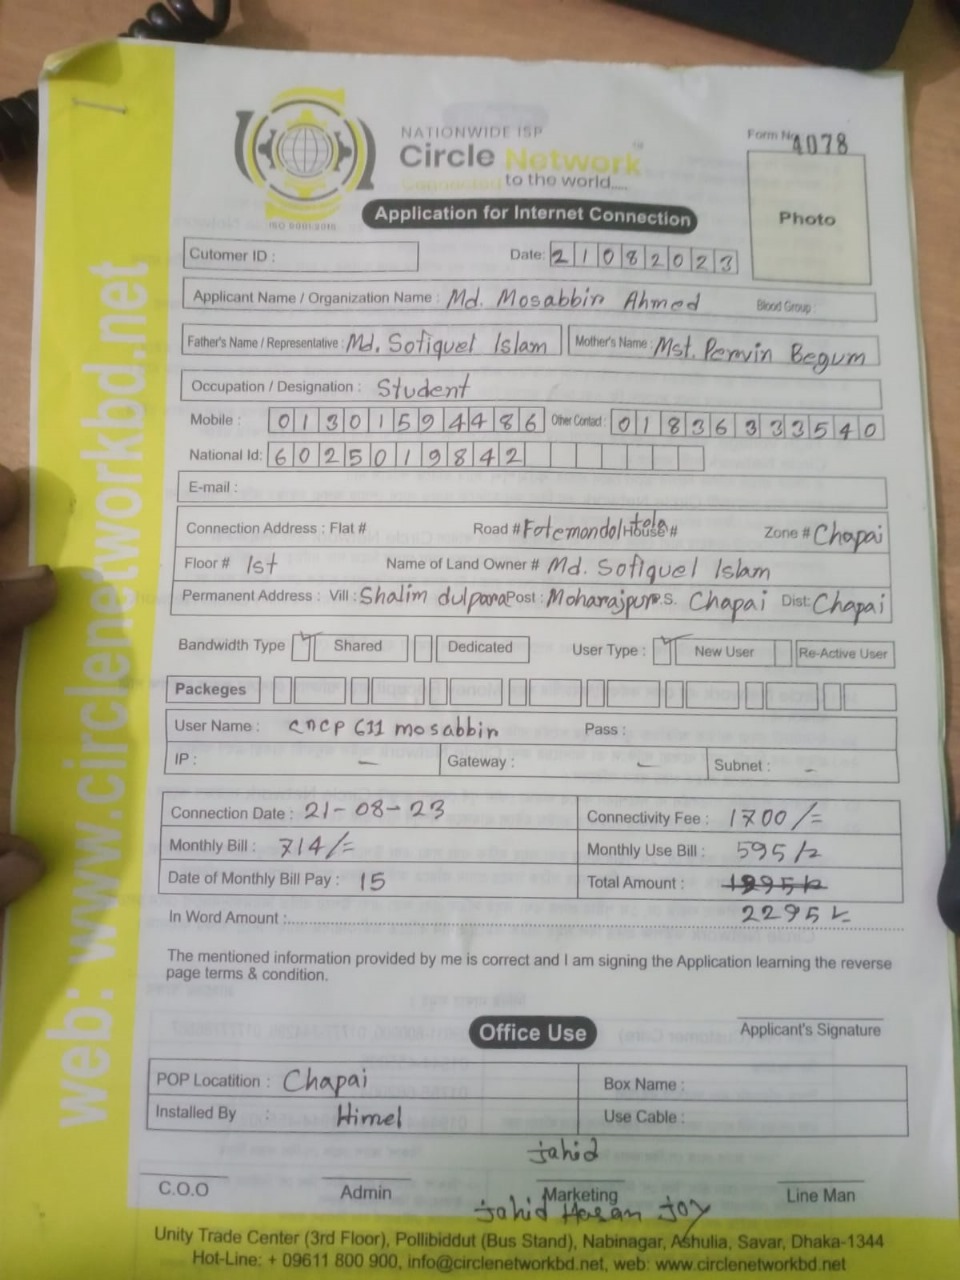 NATIONWIDE ISP
Circle Network
Connected to the world.....
ISO 9001:2015
Form No 4078
Photo
Application for Internet Connection
Cutomer ID :
Date: 21082023
Applicant Name / Organization Name : Md. Mosabbin Ahmed Blood Group :
Father's Name / Representative : Md. Sofiquel Islam Mother's Name : Mst. Penvin Begum
Occupation / Designation : Student
Mobile : 01301594486 Other Contact : 01836333540
National Id: 6025019842
E-mail :
Connection Address : Flat # Road # Fotemondol tola House # Zone # Chapai
Floor # 1st Name of Land Owner # Md. Sofiquel Islam
Permanent Address : Vill : Shalim dulpara Post : Moharajpur P.S. Chapai Dist: Chapai
Bandwidth Type ✓ Shared Dedicated User Type : ✓ New User Re-Active User
Packeges
User Name : cncp 611 mosabbin Pass :
IP : – Gateway : – Subnet : –
Connection Date : 21-08-23 Connectivity Fee : 1700/=
Monthly Bill : 714/= Monthly Use Bill : 595/=
Date of Monthly Bill Pay : 15 Total Amount :
In Word Amount : 2295/=
The mentioned information provided by me is correct and I am signing the Application learning the reverse
page terms & condition.
Applicant's Signature
Office Use
POP Locatition : Chapai Box Name :
Installed By : Himel Use Cable :
Jahid
C.O.O Admin Marketing Line Man
Jahid Hasan Joy
Unity Trade Center (3rd Floor), Pollibiddut (Bus Stand), Nabinagar, Ashulia, Savar, Dhaka-1344
Hot-Line: + 09611 800 900, info@circlenetworkbd.net, web: www.circlenetworkbd.net
web: www.circlenetworkbd.net